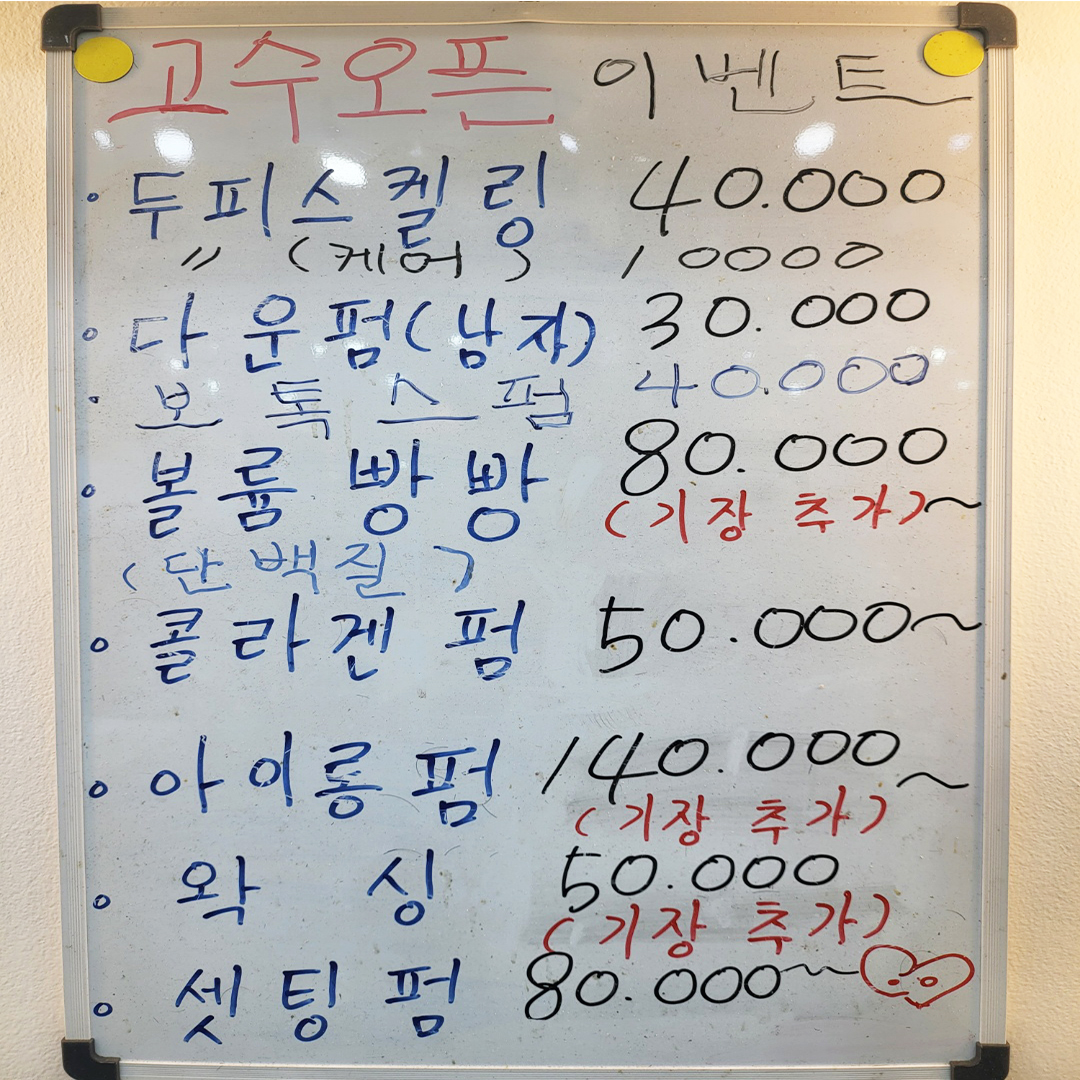 고수오픈 이벤트
• 두피스켈링 40.000
〃 (케어) 10000
• 다운펌(남자) 30.000
• 보톡스펌 40.000
• 볼륨빵빵 80.000
(기장 추가)~
(단백질)
• 콜라겐 펌 50.000~
• 아이롱펌 140.000~
(기장 추가)
• 왁싱 50.000
(기장 추가)
• 셋팅펌 80.000~~